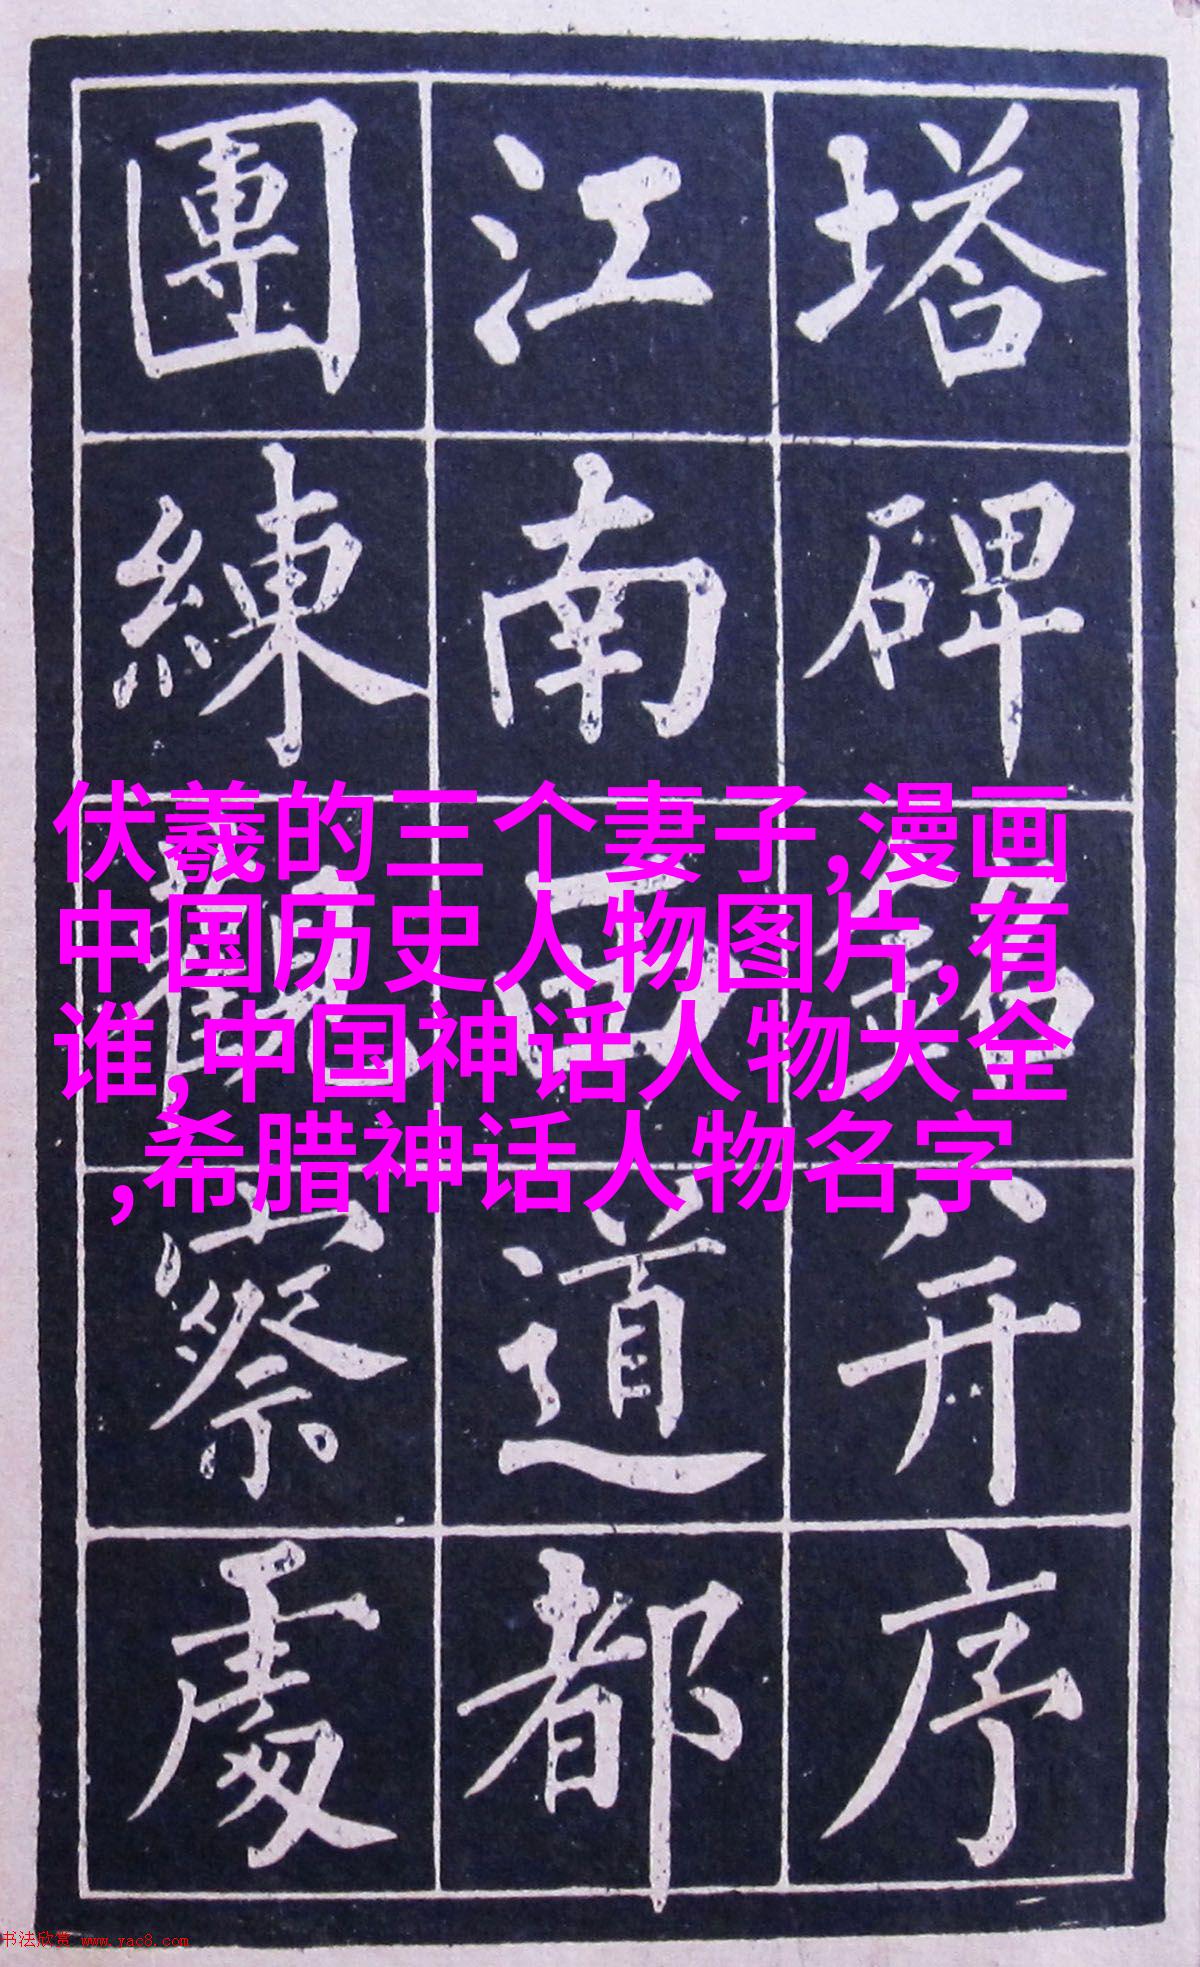 塔碑銘并序
江南西道都
團練觀察處
伏羲的三个妻子,漫画
中国历史人物图片,有
谁,中国神话人物大全
,希腊神话人物名字
书法欣赏 www.yac8.com